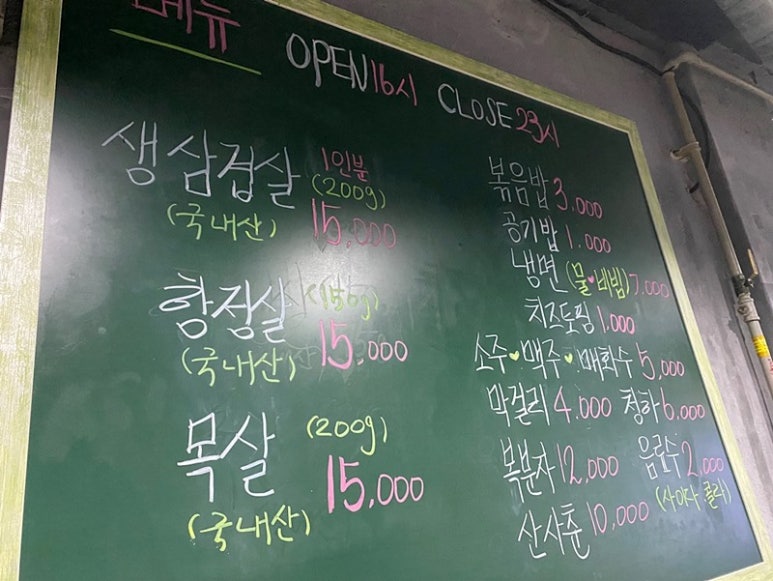 메뉴
OPEN 16시 CLOSE 23시
생삼겹살 1인분
(200g)
(국내산) 15,000
항정살 (150g)
(국내산) 15,000
목살 (200g)
(국내산) 15,000
볶음밥 3,000
공기밥 1,000
냉면 (물·비빔) 7,000
치즈토핑 1,000
소주·맥주·매화수 5,000
막걸리 4.000 청하 6.000
복분자 12,000 음료수 2,000
(사이다 콜라)
산사춘 10,000